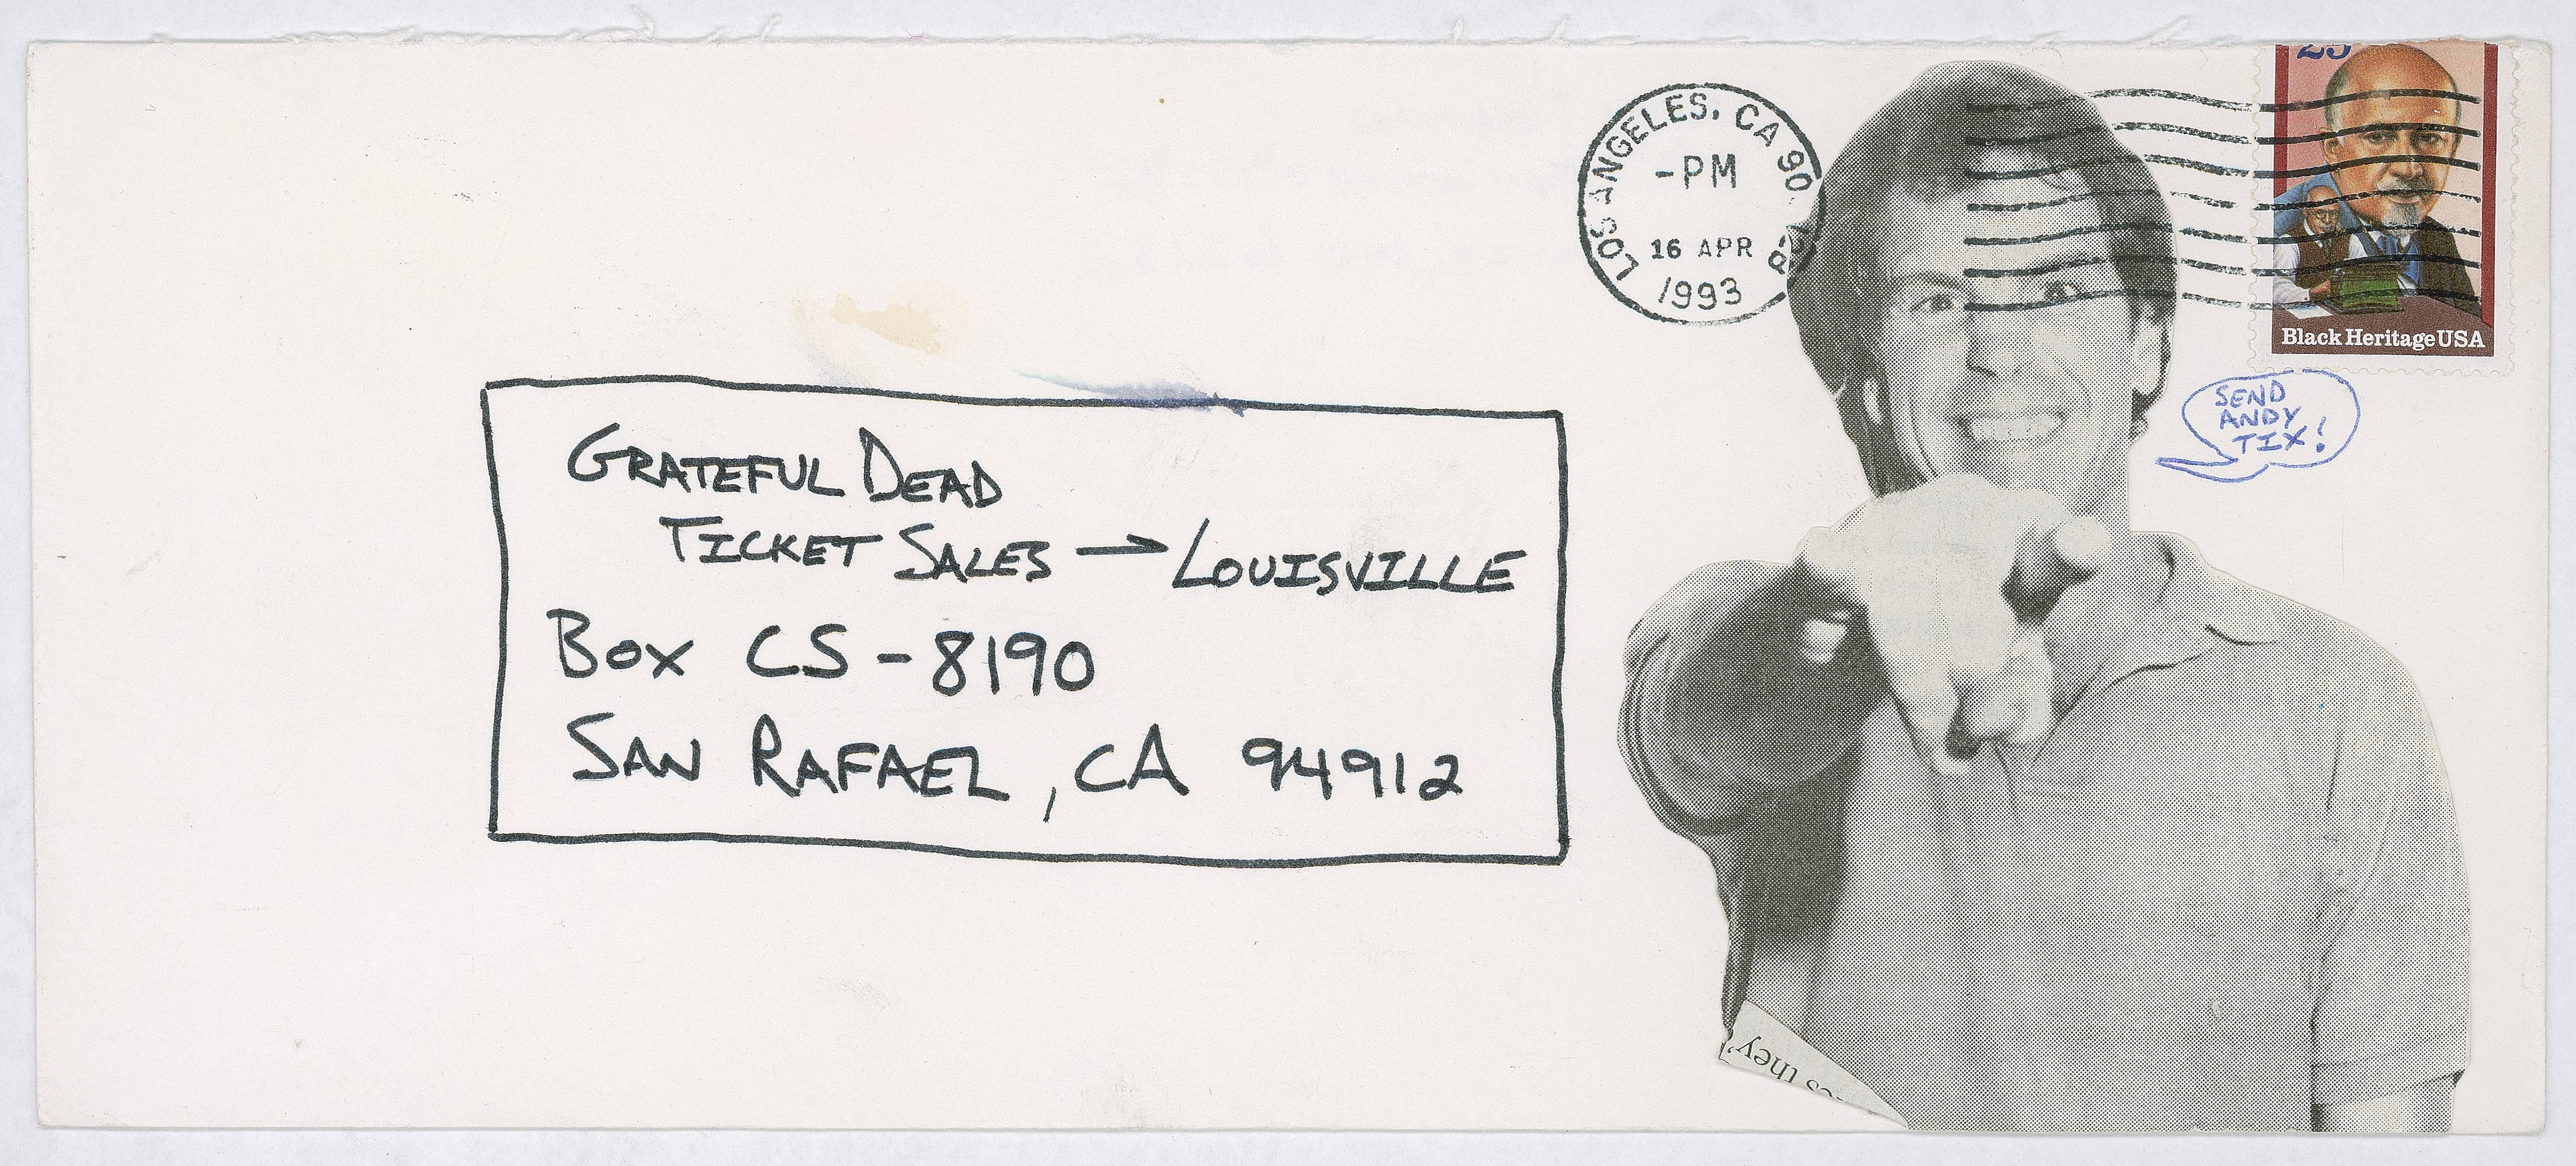 LOS ANGELES, CA 90
-PM
16 APR
1993
Black Heritage USA
SEND
ANDY
TIX!
GRATEFUL DEAD
TICKET SALES → LOUISVILLE
BOX CS-8190
SAN RAFAEL, CA 94912
they